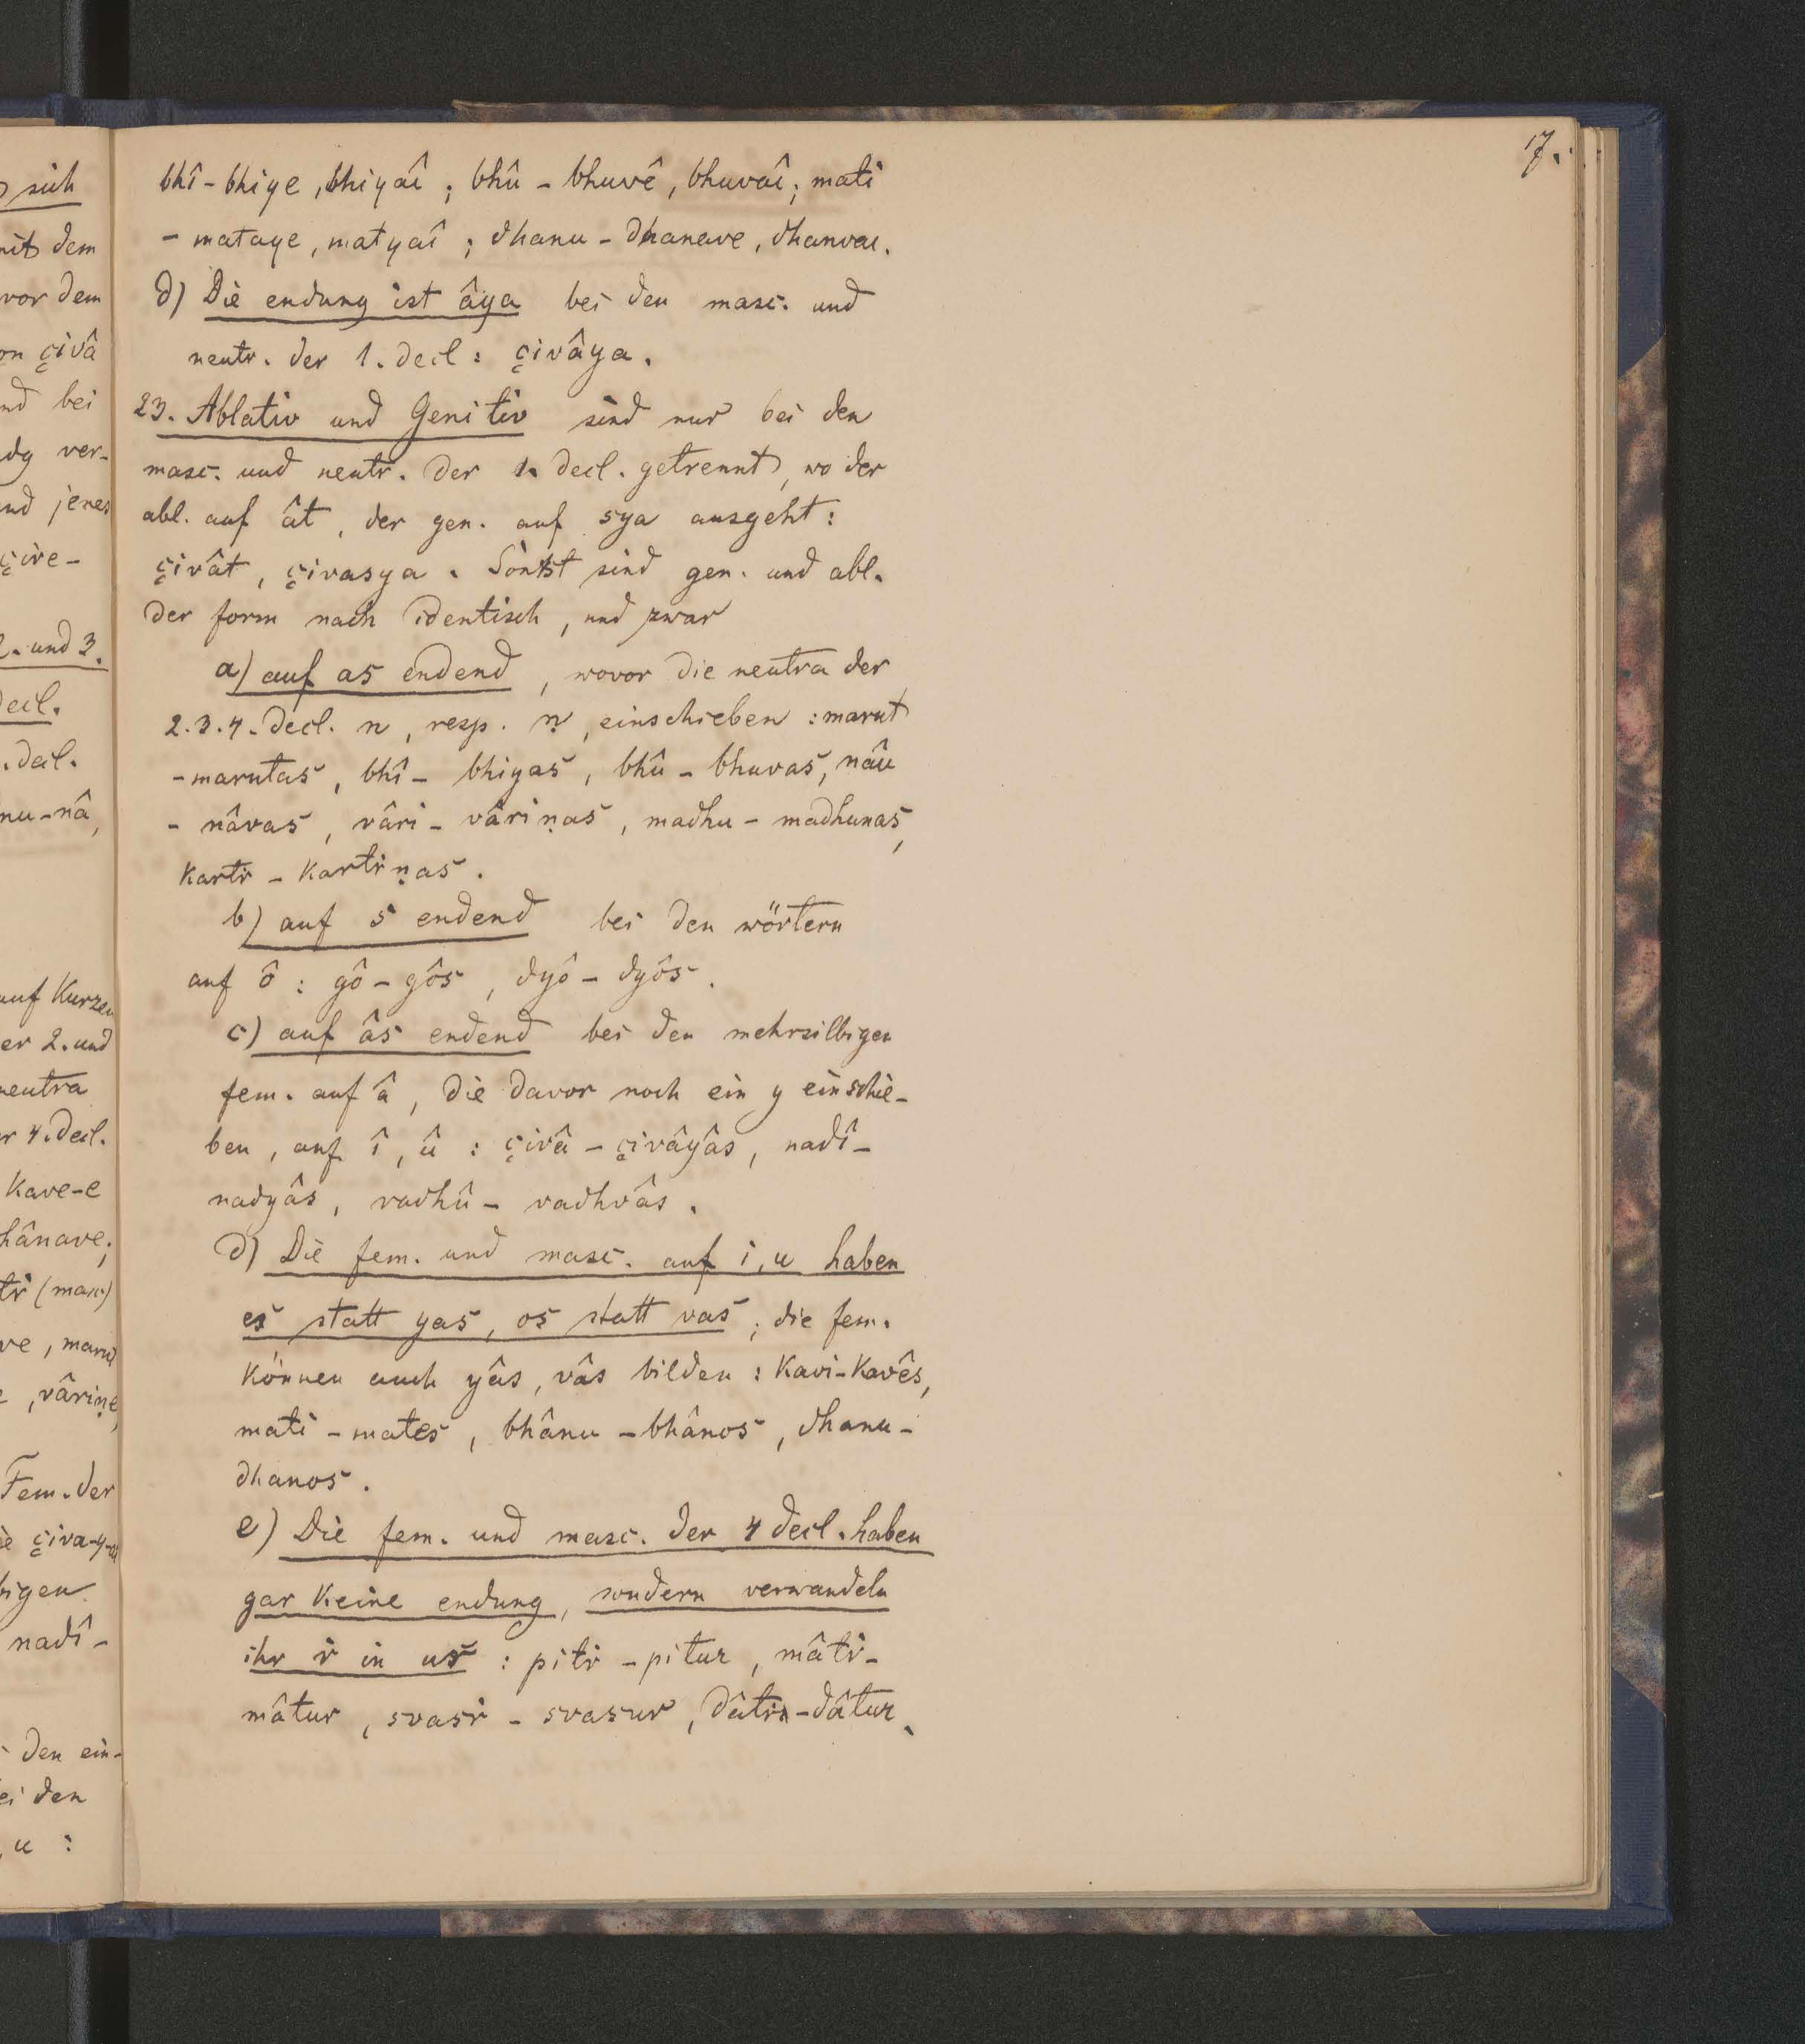 17.
bhî-bhiye, bhiyaî; bhû - bhuvê, bhuvaî; mati
- mataye, matyaî; dhanu - dhanave, dhanvai.
d) Die endung ist âya bei den masc. und
neutr. der 1. decl: çivâya.
23. Ablativ und Genitiv sind nur bei den
masc. und neutr. der 1. decl. getrennt, wo der
abl. auf ât, der gen. auf sya ausgeht:
çivât, çivasya. Sonst sind gen. und abl.
der form nach identisch, und zwar
a) auf as endend, wovor die neutra der
2.3.4. decl. n, resp. ṇ, einschieben: marut
- marutas, bhî - bhiyas, bhû - bhuvas, nâu
- nâvas, vâri - vâriṇas, madhu - madhunas,
kartr - kartriṇas.
b) auf s endend bei den wörtern
auf ô: gô - gôs, dyô - dyôs.
c) auf âs endend bei den mehrsilbigen
fem. auf â, die davor noch ein y einschie-
ben, auf î, û: çivâ - çivâyâs, nadî -
nadyâs, vadhû - vadhvâs.
d) Die fem. und masc. auf i, u haben
es statt yas, os statt vas; die fem.
können auch yâs, vâs bilden: Kavi-Kavês,
mati - mates, bhânu - bhânos, dhanu -
dhanos.
e) Die fem. und masc. der 4 decl. haben
gar keine endung, sondern verwandeln
ihr ṙ in us: pitṙ - pitur, mâtṙ -
mâtur, svasṙ - svasur, dâtṙ - dâtur.
sich
mit dem
vor dem
çivâ
bei
ver-
jenes
çive-
2. und 3.
decl.
decl.
nu-nâ,
auf Kurzen
er 2. und
neutra
4. decl.
Kave-e
hânave;
(masc)
, marut
, vâriṇe,
Fem. der
çiva-y-ai
nadî -
den ein-
den
u :